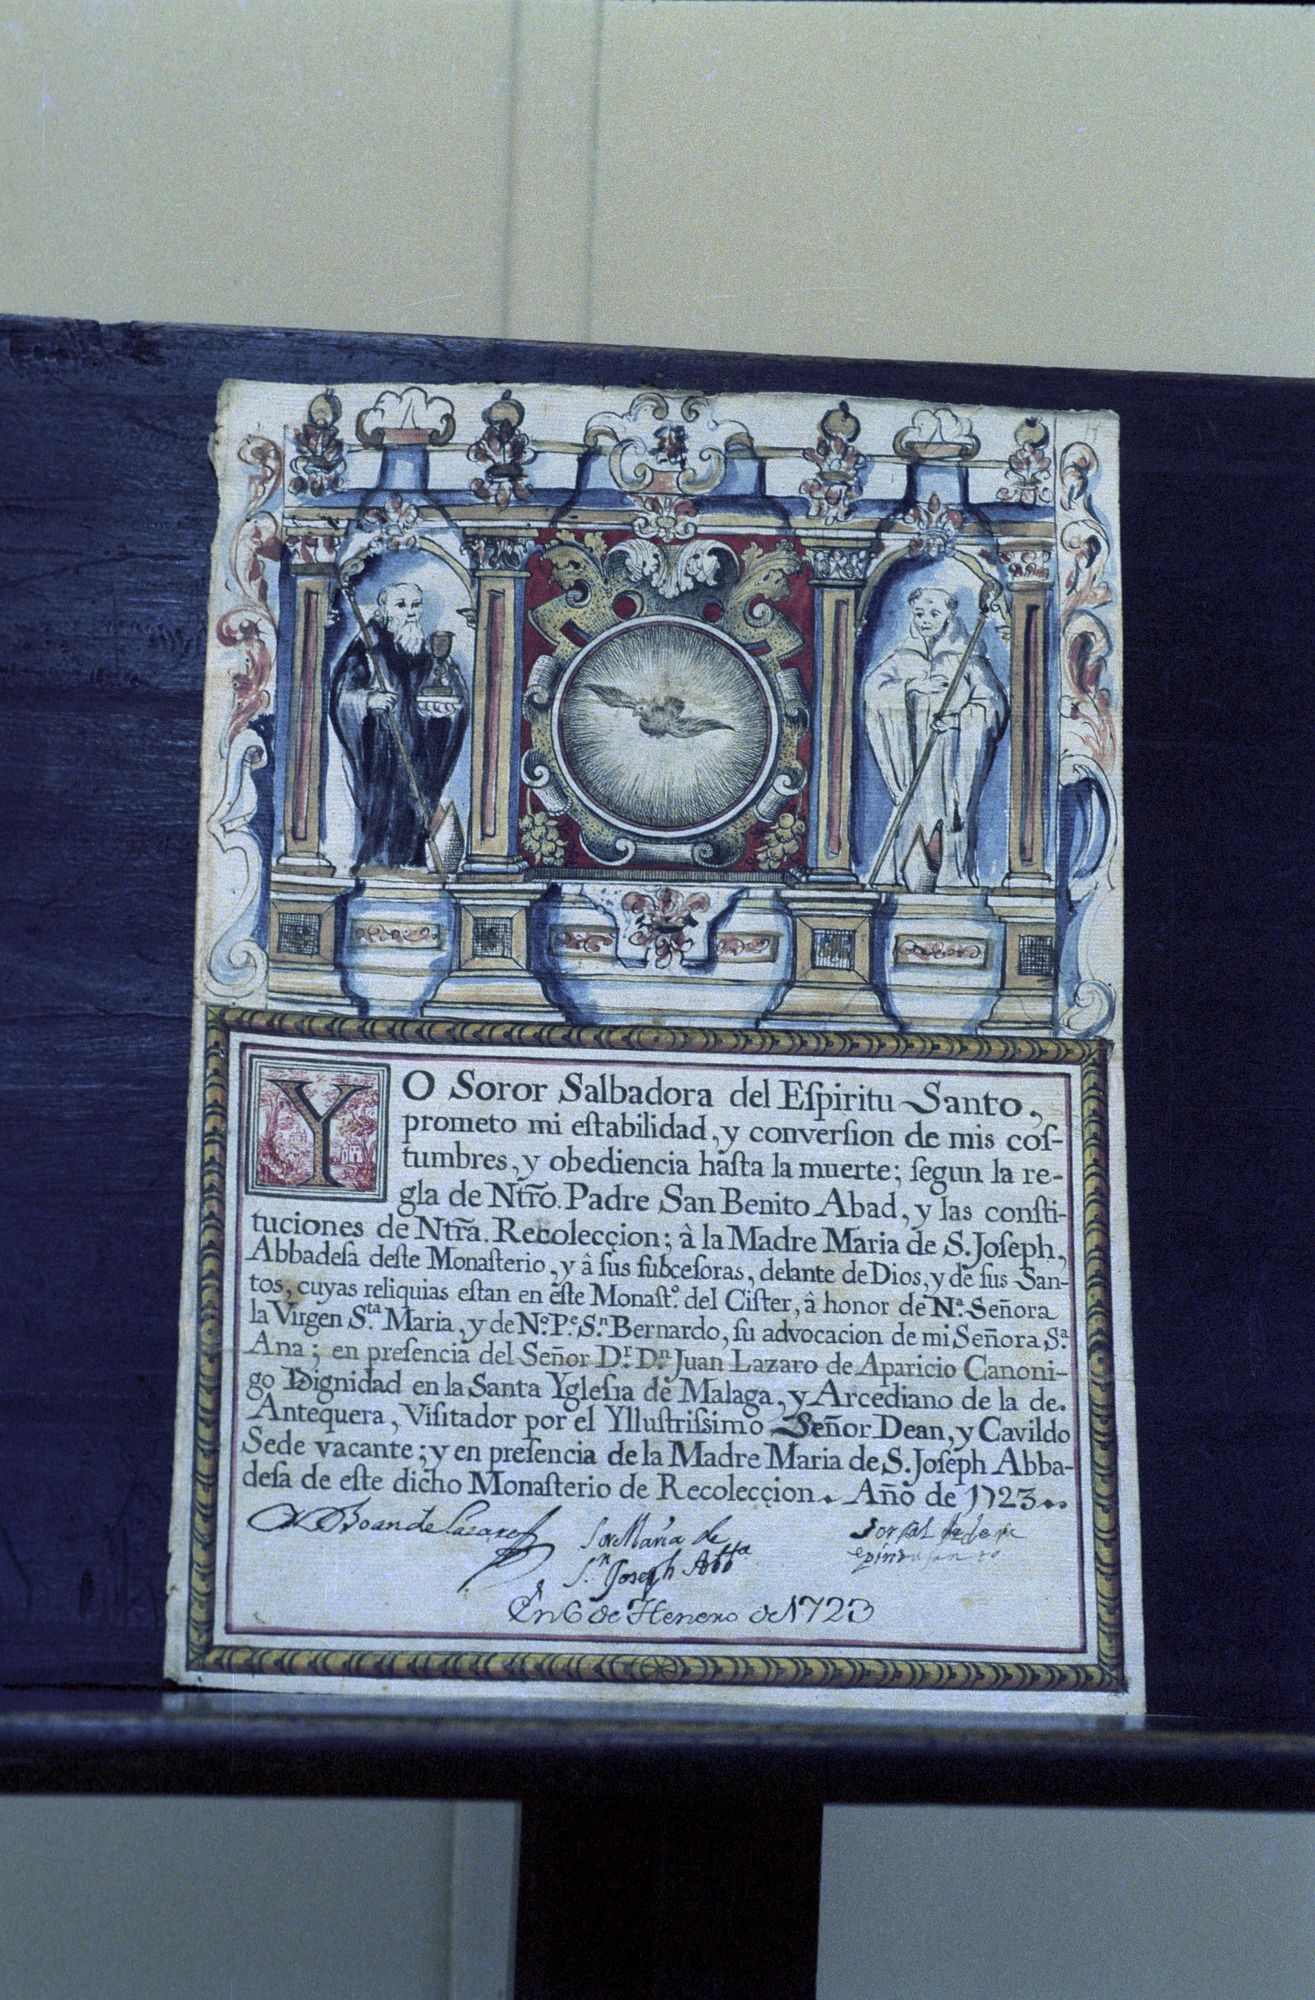 YO Soror Salbadora del Eſpiritu Santo,
prometo mi eſtabilidad, y converſion de mis coſ-
tumbres, y obediencia haſta la muerte; ſegun la re-
gla de Ntr̃o. Padre San Benito Abad, y las conſti-
tuciones de Ntr̃a. Recolecçion; â la Madre Maria de S. Joſeph,
Abbadeſa deſte Monaſterio, y â ſus ſubceſoras, delante de Dios, y de ſus San-
tos, cuyas reliquias eſtan en eſte Monaſt.º del Ciſter, â honor de Nª. Señora
la Virgen S.ta Maria, y de Nº. P.e S.n Bernardo, ſu advocacion de mi Señora S.ª
Ana; en preſencia del Señor D.r D.n Juan Lazaro de Aparicio Canoni-
go Dignidad en la Santa Ygleſia de Malaga, y Arcediano de la de.
Antequera, Viſitador por el Yllustriſsimo Señor Dean, y Cavildo
Sede vacante; y en preſencia de la Madre Maria de S. Joſeph Abba-
deſa de eſte dicho Monaſterio de Recolecçion. Año de 1723..
Sor Maria de
S.n Joseph Abb.ª
En 6 de Henero de 1723